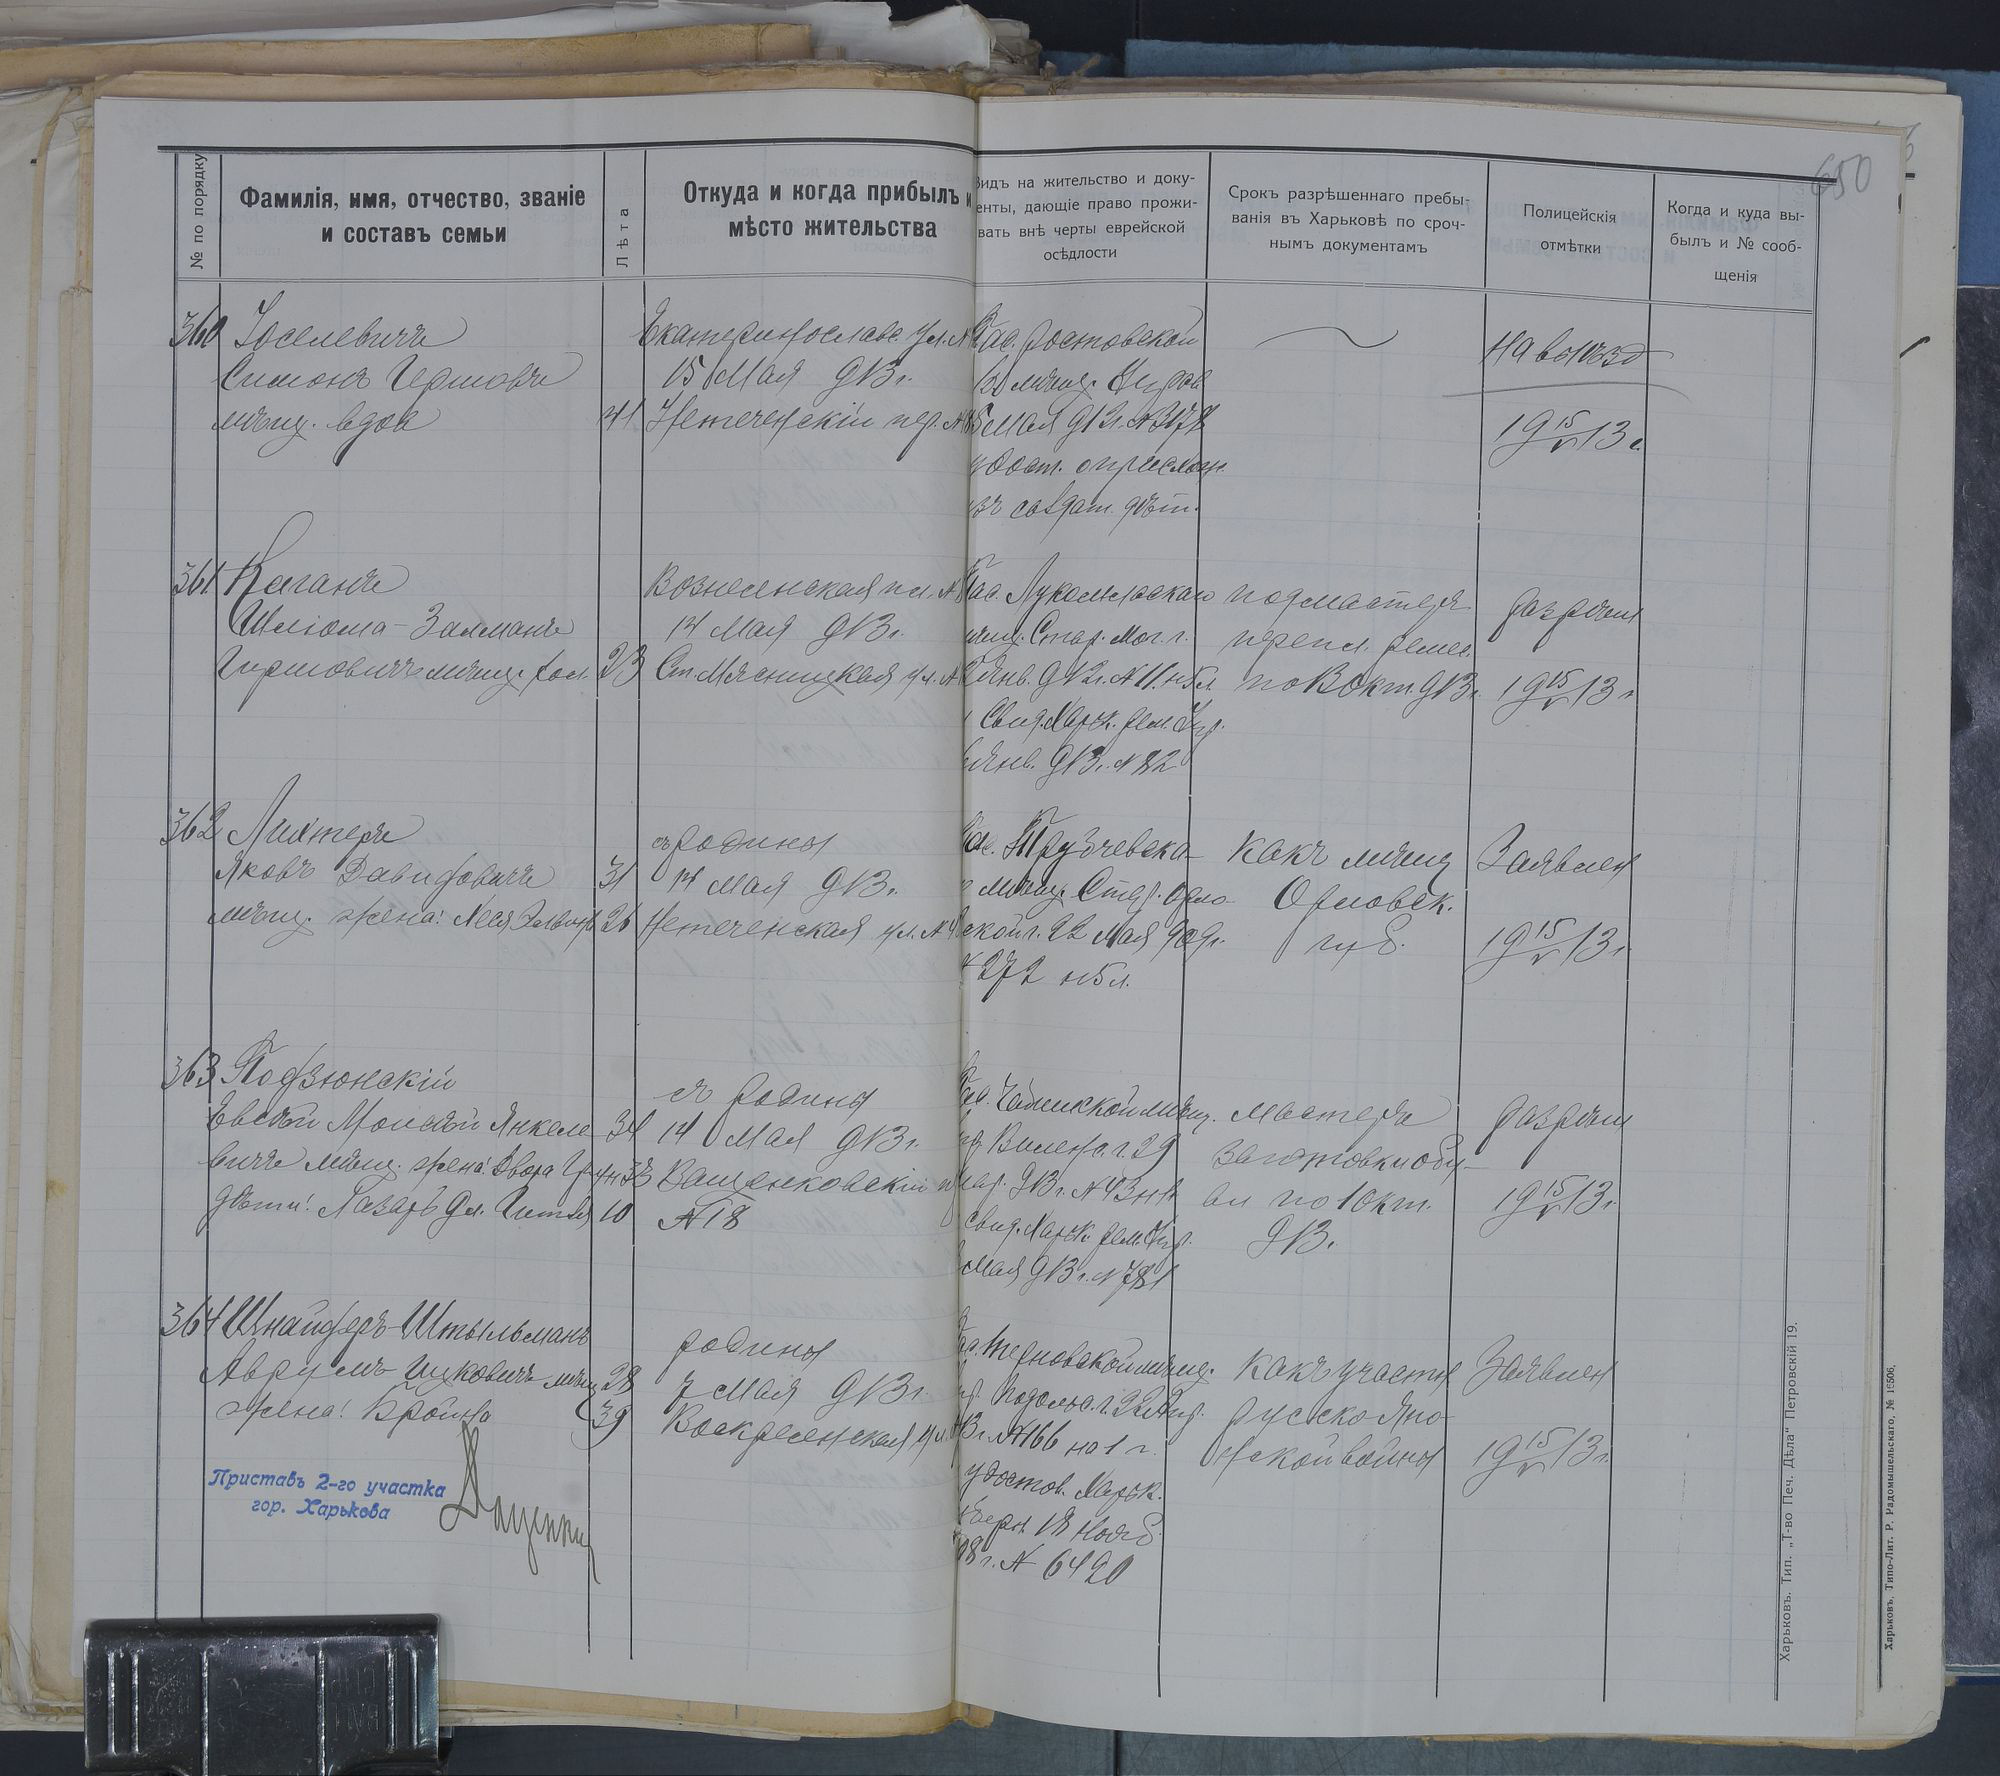 650
№ по порядку
Фамилія, имя, отчество, званіе
и составъ семьи
Лѣта
Откуда и когда прибылъ и
мѣсто жительства
Видъ на жительство и доку-
енты, дающіе право прожи-
вать внѣ черты еврейской
осѣдлости
Срокъ разрѣшеннаго пребы-
ванія въ Харьковѣ по сроч-
нымъ документамъ
Полицейскія
отмѣтки
Когда и куда вы-
былъ и № сооб-
щенія
360 Іоселевичъ
Симонъ Гершовичъ
мѣщ. вдов 41
Екатеринослав. ул. №
15 Мая 913 г.
Нетеченскій пер. №
Пас. Ростовской
мѣщ. Управ
Мая 913 г. № 3178
удост. о присл
изъ солдат. дѣт.
На выѣзд
19 15/V 13 г.
361 Каганъ
Шліома-Залманъ
Гиршовичъ мѣщ. хол. 23
Вознесенская пл. №
14 Мая 913 г.
Ст. Мясницкая ул. №
Пас. Лукомльскаго
мѣщ. Стар. Мог. г.
Янв. 912 г. № 11 н 5 л.
Свид. Харьк. Рем. Упр.
Янв. 913 г. № 82
подмастерье
перепл. ремес.
по 13 Окт. 913 г.
разрѣш
19 15/V 13 г.
362 Лихтеръ
Яковъ Давидовичъ 31
мѣщ. жена: Песя 26
съ родины
14 мая 913 г.
Нетеченская ул. №
Пас. Трубчевска-
го мѣщ. Стар. Орло-
ской г. 22 Мая 909 г.
№ 272 н 5 л.
какъ мѣщ
Орловск.
губ.
Заявлен
19 15/V 13 г.
363 Подзюнскій
Евсѣй Моисѣй Янкеле 34
вичъ мѣщ. жена: Двора
дѣти: Лазарь 9 л. Гитля 10
съ родины
14 мая 913 г.
Ващенковскій п
№ 18
мѣщ.
Виленс. г. 29
913 г. № 43 н 1 г
Свид. Харьк. Рем. Упр.
мая 913 г. № 781
мастеръ
заготовки обу-
ви по 1 Окт.
913.
разрѣш
19 15/V 13 г.
364 Шнайдеръ-Штыльманъ
Аврумъ Ицковичъ мѣщ 28
жена: Бройна 39
родины
7 мая 913 г.
Воскресенская ул.
Пас. Терновской мѣщ.
упр. Подольс. г. 22 Апр.
913 г. № 166 на 1 г.
удостов. Харьк.
Губерн. 18 Нояб.
908 г. № 6420
какъ участн
русско Япо-
нской войны
Заявлен
19 15/V 13 г.
Приставъ 2-го участка
гор. Харькова
Харьковъ. Тип. „Т-во Печ. Дѣла" Петровскій 19.
Харьковъ, Типо-Лит. Р. Радомышельскаго, № 16506.